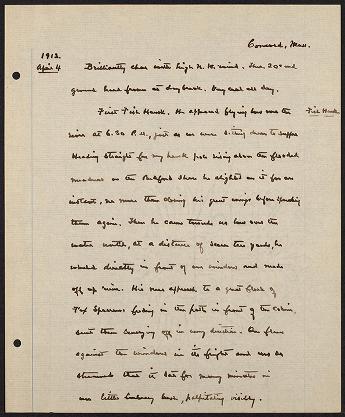 Concord, Mass.
1912.
April 4.
Brilliantly clear with high N.W. wind. Ther. 20° and
ground hard frozen at daybreak. and all day.
First Fish Hawk. He appeared flying low over the
Fish Hawk
river at 6.30 P.M., just as we were sitting down to supper
Heading straight for my hawk pole rising above the flooded
meadows on the Bedford shore he alighted on it for an
instant, no more than closing his great wings before spreading
them again. Then he came towards us low over the
water until, at a distance of seven ten yards, he
wheeled directly in front of our windows and made
off up river. His near approach to a great flock of
Fox Sparrows feeding in the path in front of the cabin,
sent them scurrying off in every direction. One flew
against the windows in its fright and was so
stunned that it sat for many minutes in
our little bush, palpitating visibly.